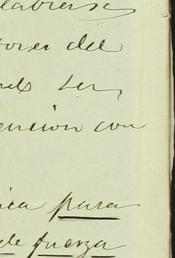 labrarse
tores del
ser
ención con
ica para
de fuerza